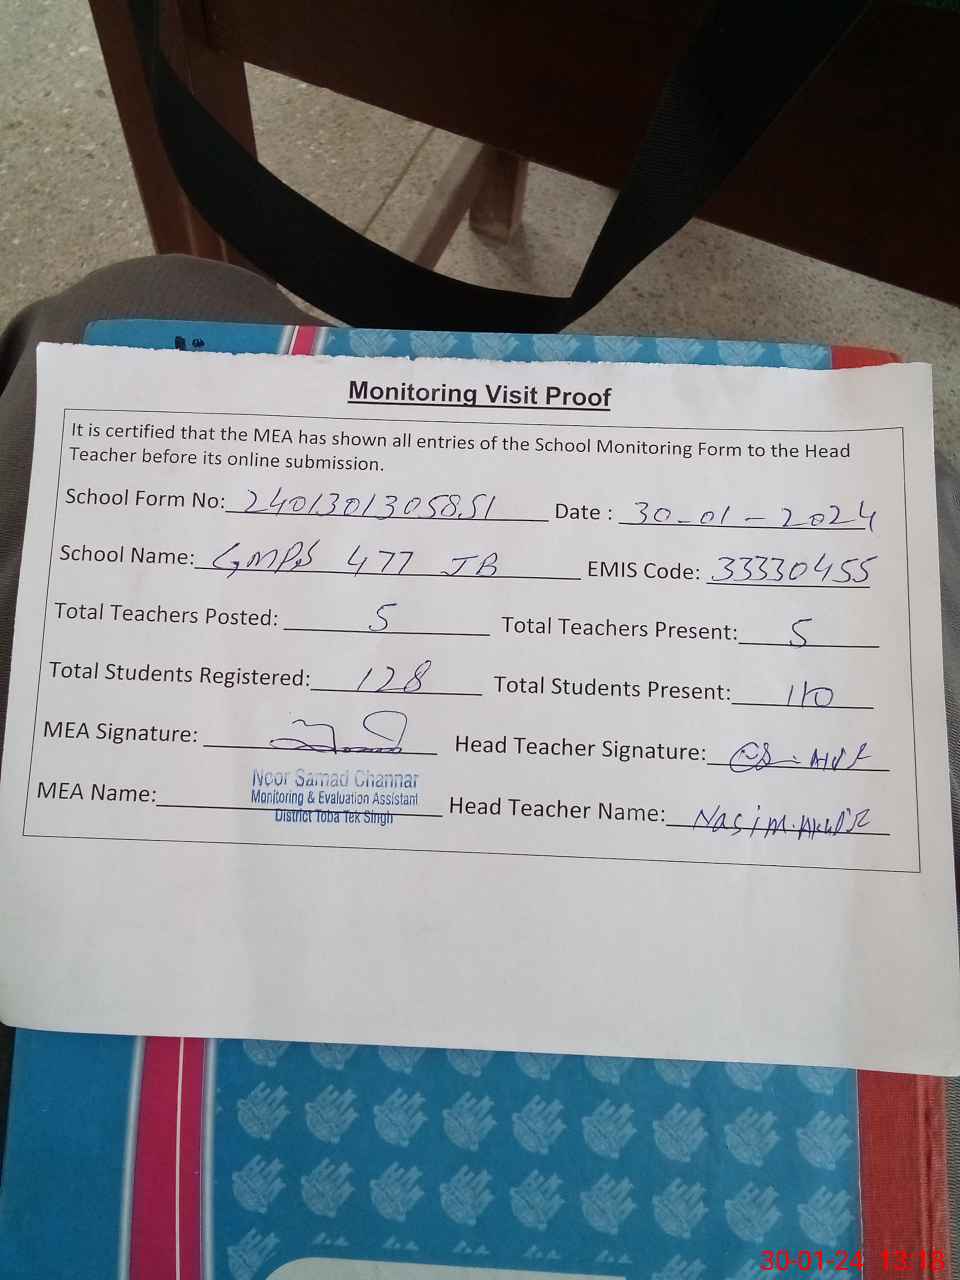 Monitoring Visit Proof
It is certified that the MEA has shown all entries of the School Monitoring Form to the Head
Teacher before its online submission.
School Form No: 2401301305851 Date : 30-01-2024
School Name: GMPS 477 JB EMIS Code: 33330455
Total Teachers Posted: 5 Total Teachers Present: 5
Total Students Registered: 128 Total Students Present: 110
MEA Signature: Head Teacher Signature:
Noor Samad Channar
Monitoring & Evaluation Assistant
District Toba Tek Singh
MEA Name: Head Teacher Name: Nasim Akhtar
30-01-24 13:18